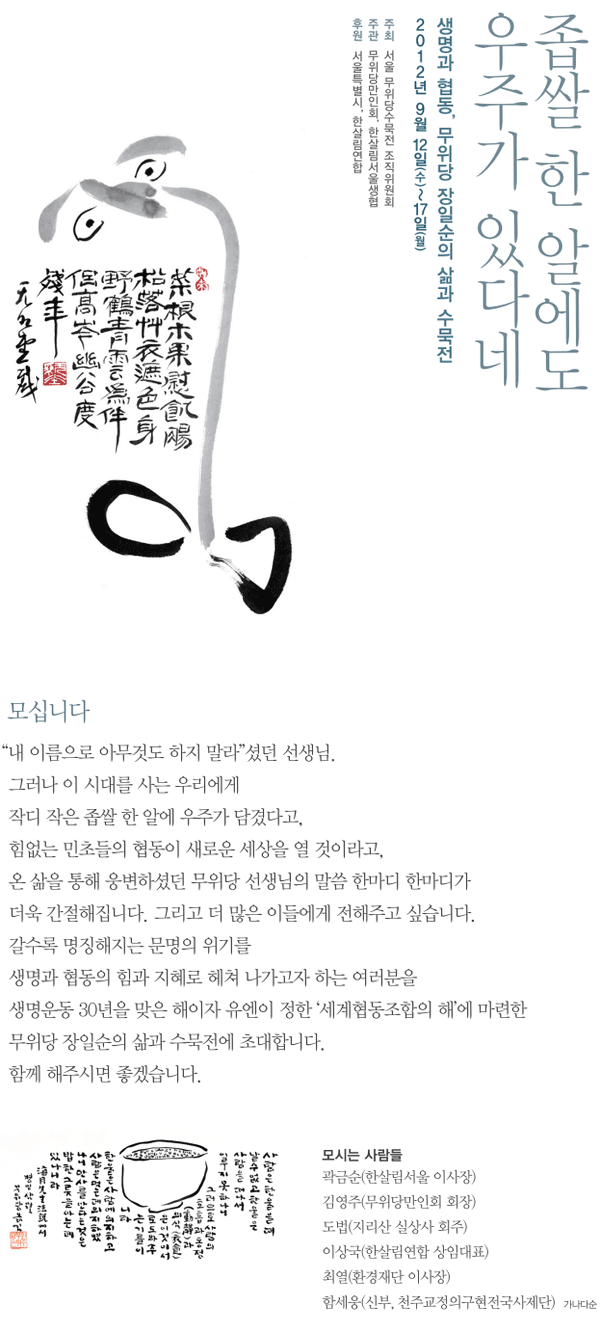 좁쌀 한 알에도
우주가 있다네
생명과 협동, 무위당 장일순의 삶과 수묵전
2012년 9월 12일(수)~17일(월)
주최 서울 무위당수묵전 조직위원회
주관 무위당만인회, 한살림서울생협
후원 서울특별시, 한살림연합
菜根木果慰飢腸
松落艸衣遮色身
野鶴靑雲爲伴
侶高岑幽谷度
殘年
모십니다
“내 이름으로 아무것도 하지 말라”셨던 선생님.
그러나 이 시대를 사는 우리에게
작디 작은 좁쌀 한 알에 우주가 담겼다고,
힘없는 민초들의 협동이 새로운 세상을 열 것이라고,
온 삶을 통해 웅변하셨던 무위당 선생님의 말씀 한마디 한마디가
더욱 간절해집니다. 그리고 더 많은 이들에게 전해주고 싶습니다.
갈수록 명징해지는 문명의 위기를
생명과 협동의 힘과 지혜로 헤쳐 나가고자 하는 여러분을
생명운동 30년을 맞은 해이자 유엔이 정한 ‘세계협동조합의 해’에 마련한
무위당 장일순의 삶과 수묵전에 초대합니다.
함께 해주시면 좋겠습니다.
모시는 사람들
곽금순(한살림서울 이사장)
김영주(무위당만인회 회장)
도법(지리산 실상사 회주)
이상국(한살림연합 상임대표)
최열(환경재단 이사장)
함세웅(신부, 천주교정의구현전국사제단) 가나다순